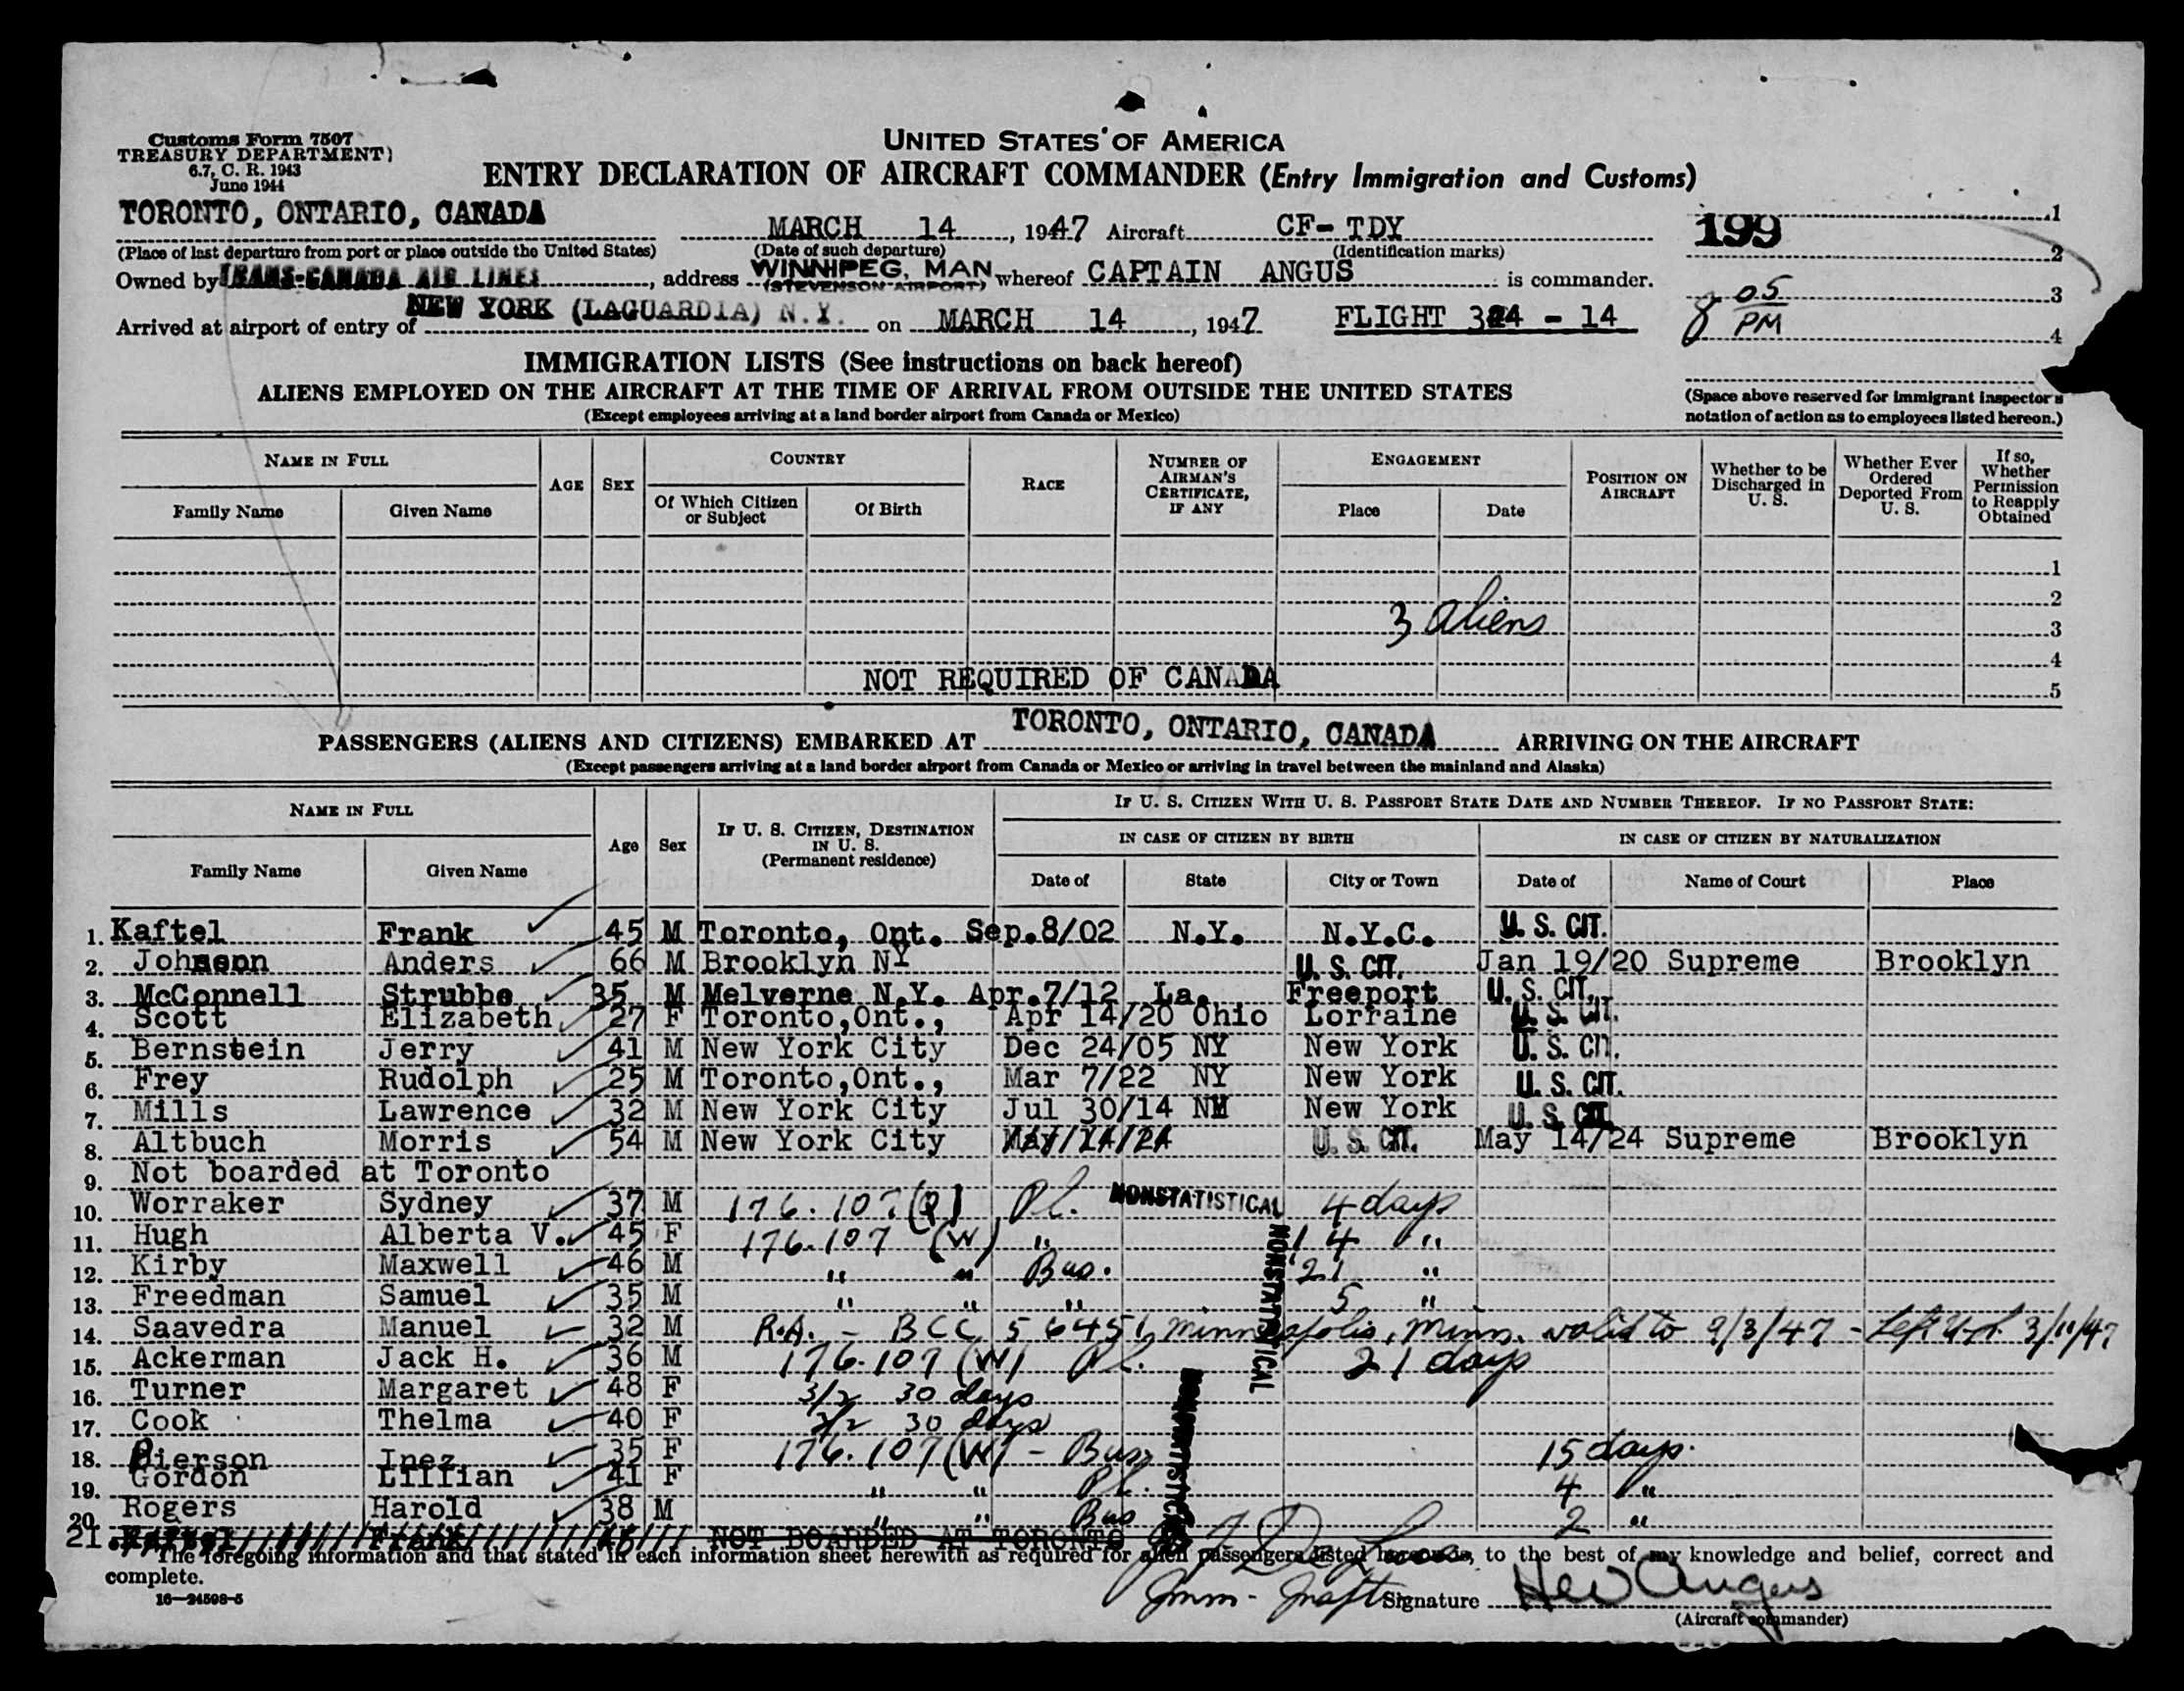 Customs Form 7507
TREASURY DEPARTMENT)
6.7, C. R. 1943
June 1944
UNITED STATES OF AMERICA
ENTRY DECLARATION OF AIRCRAFT COMMANDER (Entry Immigration and Customs)
TORONTO, ONTARIO, CANADA MARCH 14, 1947 Aircraft CF-TDY 199 1
(Place of last departure from port or place outside the United States) (Date of such departure) (Identification marks) 2
Owned by TRANS-CANADA AIR LINES, address WINNIPEG, MAN (STEVENSON AIRPORT) whereof CAPTAIN ANGUS is commander. 8 05 PM 3
Arrived at airport of entry of NEW YORK (LAGUARDIA) N.Y. on MARCH 14, 1947 FLIGHT 324 - 14 4
IMMIGRATION LISTS (See instructions on back hereof)
ALIENS EMPLOYED ON THE AIRCRAFT AT THE TIME OF ARRIVAL FROM OUTSIDE THE UNITED STATES
(Except employees arriving at a land border airport from Canada or Mexico)
(Space above reserved for immigrant inspector's
notation of action as to employees listed hereon.)
NAME IN FULL AGE SEX COUNTRY RACE NUMBER OF AIRMAN'S CERTIFICATE, IF ANY ENGAGEMENT POSITION ON AIRCRAFT Whether to be Discharged in U. S. Whether Ever Ordered Deported From U. S. If so, Whether Permission to Reapply Obtained
Family Name Given Name Of Which Citizen or Subject Of Birth Place Date
1
2
3 aliens 3
4
NOT REQUIRED OF CANADA 5
PASSENGERS (ALIENS AND CITIZENS) EMBARKED AT TORONTO, ONTARIO, CANADA ARRIVING ON THE AIRCRAFT
(Except passengers arriving at a land border airport from Canada or Mexico or arriving in travel between the mainland and Alaska)
NAME IN FULL Age Sex IF U. S. CITIZEN, DESTINATION IN U. S. (Permanent residence) IF U. S. CITIZEN WITH U. S. PASSPORT STATE DATE AND NUMBER THEREOF. IF NO PASSPORT STATE:
IN CASE OF CITIZEN BY BIRTH IN CASE OF CITIZEN BY NATURALIZATION
Family Name Given Name Date of State City or Town Date of Name of Court Place
1. Kaftel Frank 45 M Toronto, Ont. Sep.8/02 N.Y. N.Y.C. U. S. CIT.
2. Johnson Anders 66 M Brooklyn NY U. S. CIT. Jan 19/20 Supreme Brooklyn
3. McConnell Strubbe 35 M Melverne N.Y. Apr.7/12 La. Freeport U. S. CIT.
4. Scott Elizabeth 27 F Toronto,Ont., Apr 14/20 Ohio Lorraine U. S. CIT.
5. Bernstein Jerry 41 M New York City Dec 24/05 NY New York U. S. CIT.
6. Frey Rudolph 25 M Toronto,Ont., Mar 7/22 NY New York U. S. CIT.
7. Mills Lawrence 32 M New York City Jul 30/14 NY New York U. S. CIT.
8. Altbuch Morris 54 M New York City May/14/24 U. S. CIT. May 14/24 Supreme Brooklyn
9. Not boarded at Toronto
10. Worraker Sydney 37 M 176.107 (P) Pl. NONSTATISTICAL 4 days
11. Hugh Alberta V. 45 F 176.107 (W) " 14 "
12. Kirby Maxwell 46 M " " Bus. 21 "
13. Freedman Samuel 35 M " " " 5 " NONSTATISTICAL
14. Saavedra Manuel 32 M R.A. - BCC 56451, Minneapolis, Minn. valid to 9/3/47 - Left U.S. 3/11/47
15. Ackerman Jack H. 36 M 176.107 (W) Pl. 21 days
16. Turner Margaret 48 F 3/2 30 days
17. Cook Thelma 40 F 3/2 30 days
18. Pierson Inez 35 F 176.107 (W) - Bus 15 days. NONSTATISTICAL
19. Gordon Lillian 41 F " " Pl. 4 "
20. Rogers Harold 38 M " " Bus 2 "
21. Kaftel Frank NOT BOARDED AT TORONTO
The foregoing information and that stated in each information sheet herewith as required for alien passengers listed hereon is, to the best of my knowledge and belief, correct and
complete.
16—24598-5 Imm - Inspt Signature Angus
(Aircraft commander)